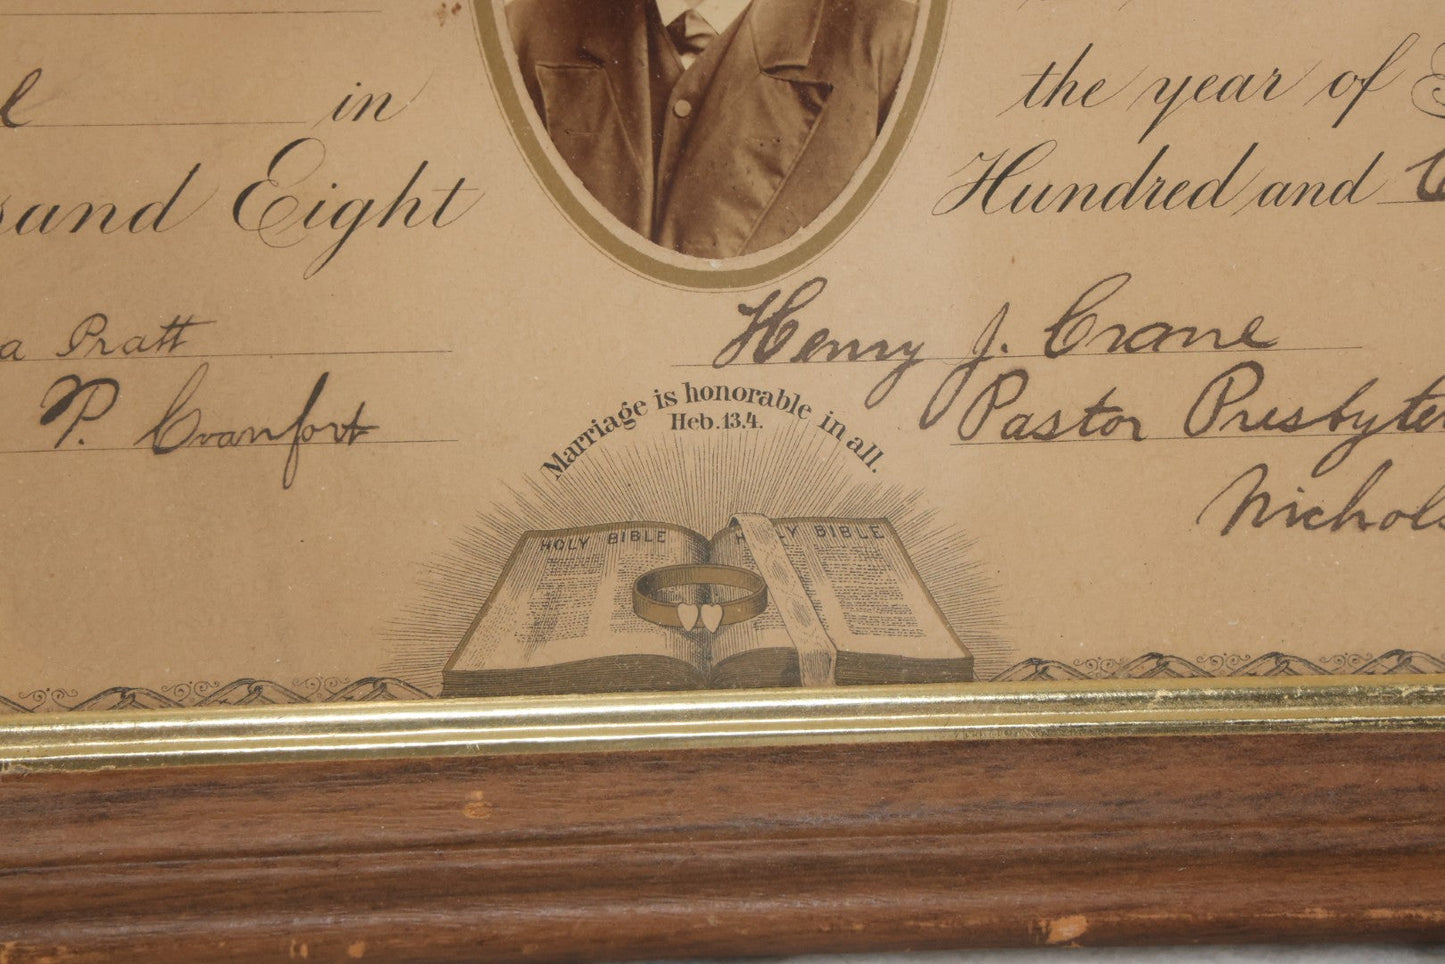 in
the year of
sand Eight
Hundred and
a Pratt
Henry J. Crane
P. Cranfort
Pastor Presbyter
Nichols
Marriage is honorable in all.
Heb. 13.4.
HOLY BIBLE
HOLY BIBLE